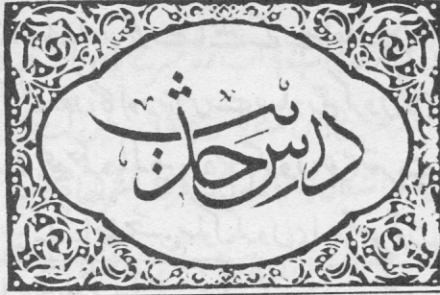 درس حدیث